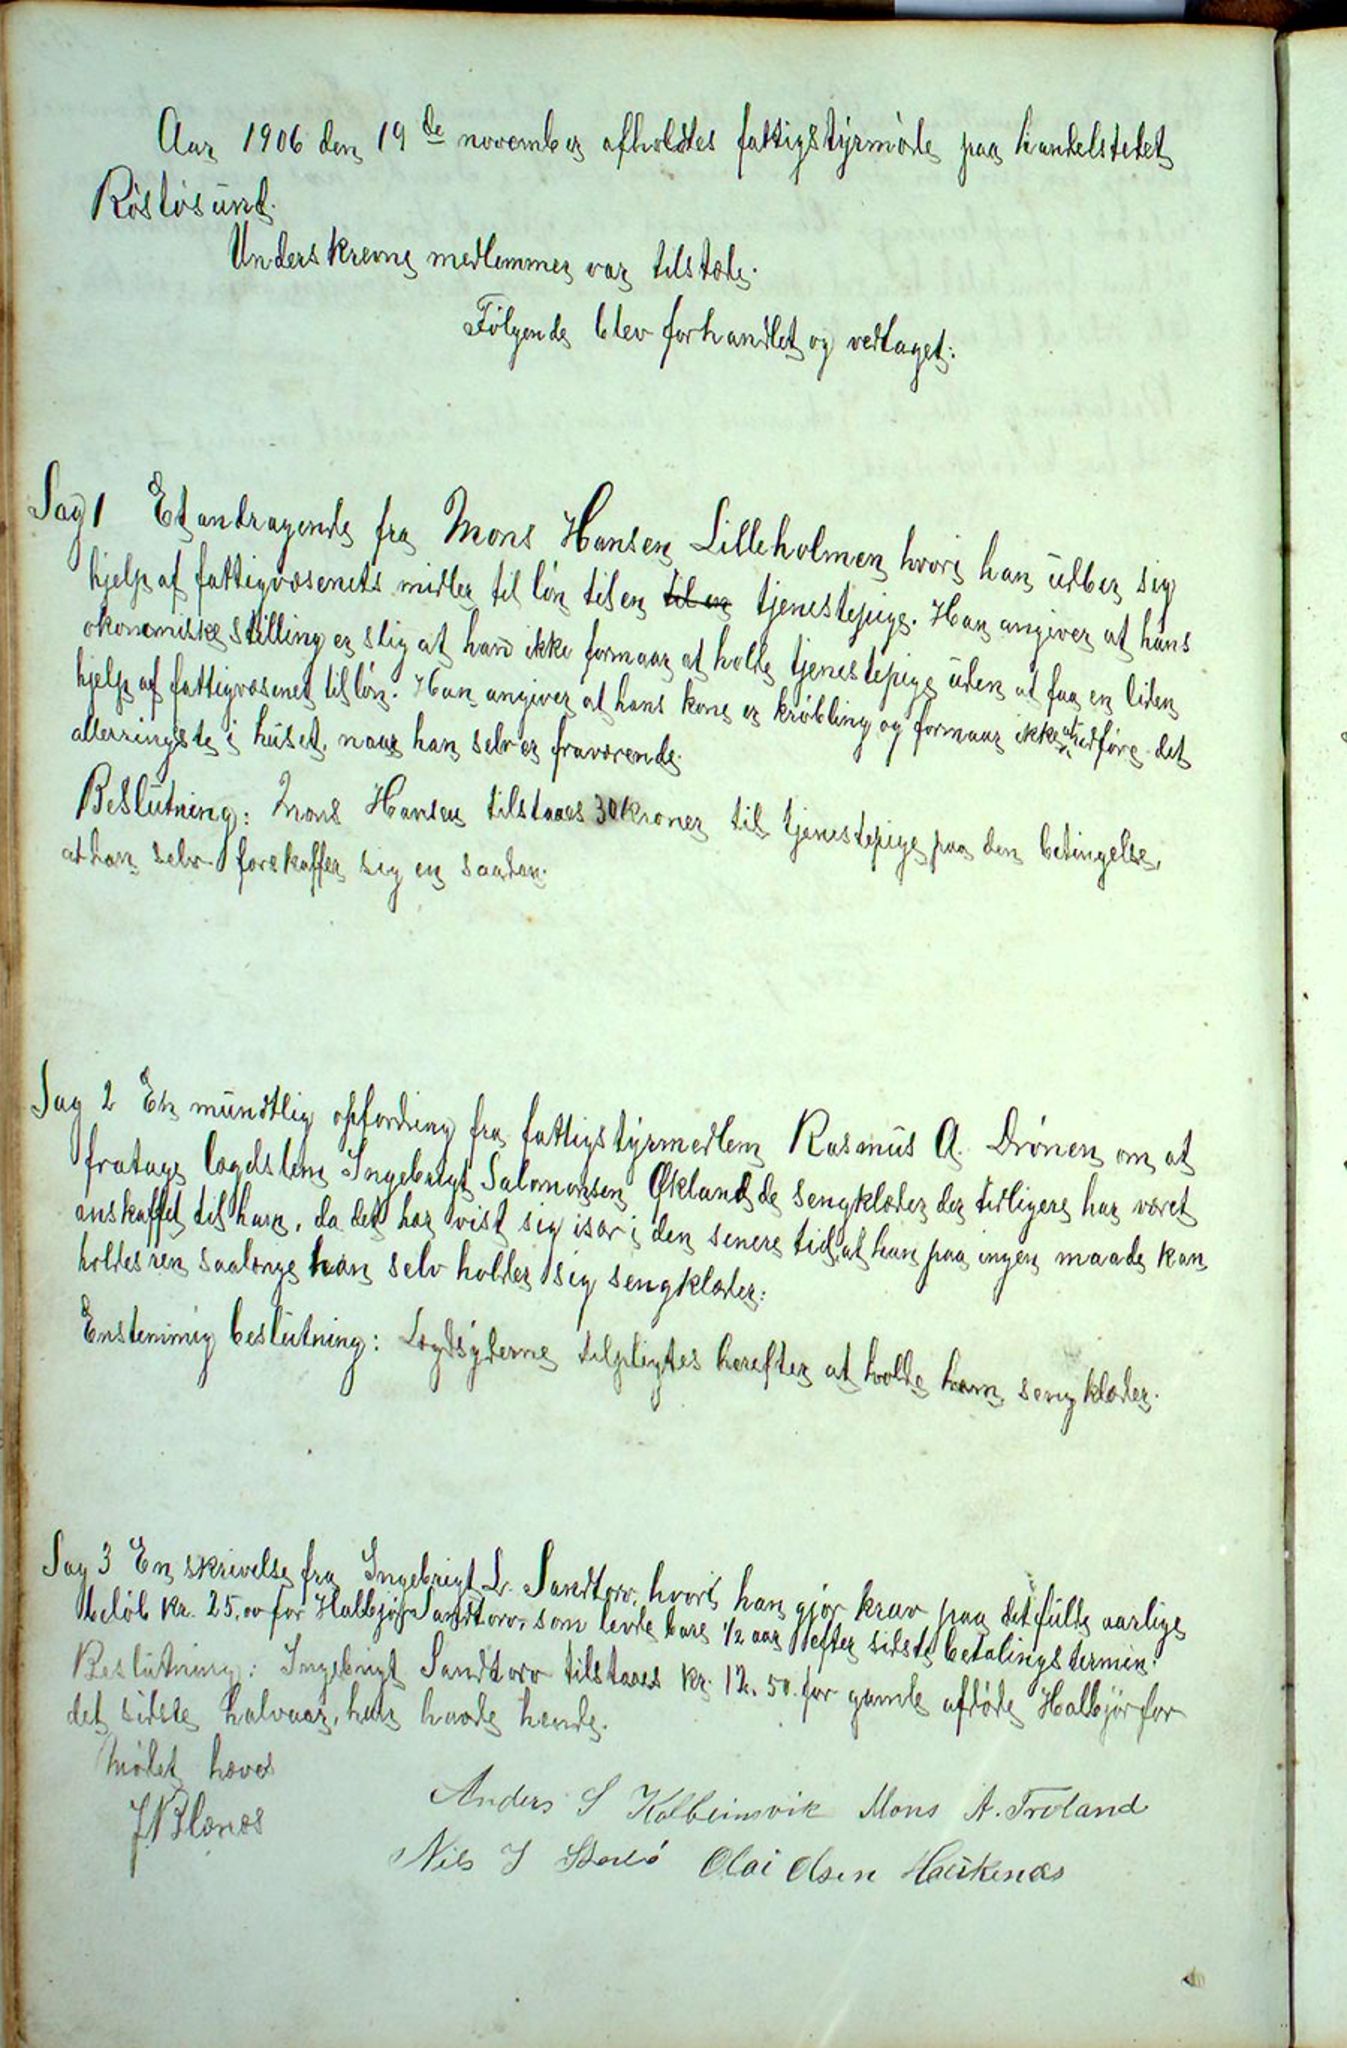 Aar 1906 den 19de november afholdtes fattigstyrmöde paa handelstedet
Röstösund.
Underskrevne medlemmer var tilstede.
Fölgende blev forhandlet og vedtaget:
Sag 1 Et andragende fra Mons Hansen Lilleholmen hvori han udber sig
hjelp af fattigvæsenets midler til lön til en til en tjenestepige. Han angiver at hans
ökonomiske stilling er slig at han ikke formaar at holde tjenestepige uden at faa en liden
hjelp af fattigvæsenet til lön. Han angiver at hans kone er kröbling og formaar ikke at udföre det
allerringeste i huset, naar han selv er fraværende.
Beslutning: Mons Hansen tilstaaes 30 kroner til tjenestepige paa den betingelse,
at han selv forskaffer sig en saadan.
Sag 2 En mundtlig opfordring fra fattigstyrmedlem Rasmus A. Drönen om at
fratage lægdslem Ingebrigt Salomonsen Økland de sengklæder der tidligere har været
anskaffet til ham, da det har vist sig især i den senere tid, at han paa ingen maade kan
holdes ren saalænge han selv holder sig sengklæder.
Enstemmig beslutning: Lægdsyderne tilpligtes herefter at holde ham sengklæder.
Sag 3 En skrivelse fra Ingebrigt L. Sandtorv, hvori han gjör krav paa det fulde aarlige
belöb kr. 25,00 for Halbjör Sandtorv, som levde bare 1/2 aar efter sidste betalingstermin.
Beslutning: Ingebrigt Sandtorv tilstaaes kr. 12,50 for gamle afdöde Halbjör for
det sidste halvaar, han havde hende.
Mödet hævet
J Blænes
Anders S Kolbeinsvik Mons A. Troland
Nils J Olai Olsen Haukenæs